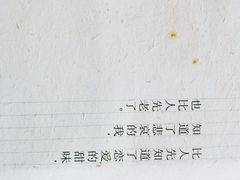 比人先知道了恋爱的甜味，
知道了悲哀的我，
也比人先老了。